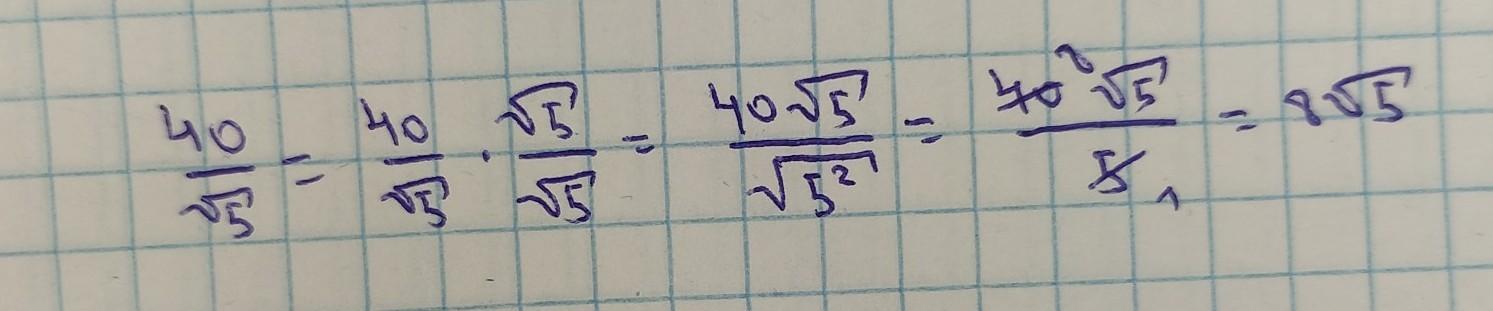 40/√5 = 40/√5 · √5/√5 = 40√5/√5² = 40⁸√5/5₁ = 8√5